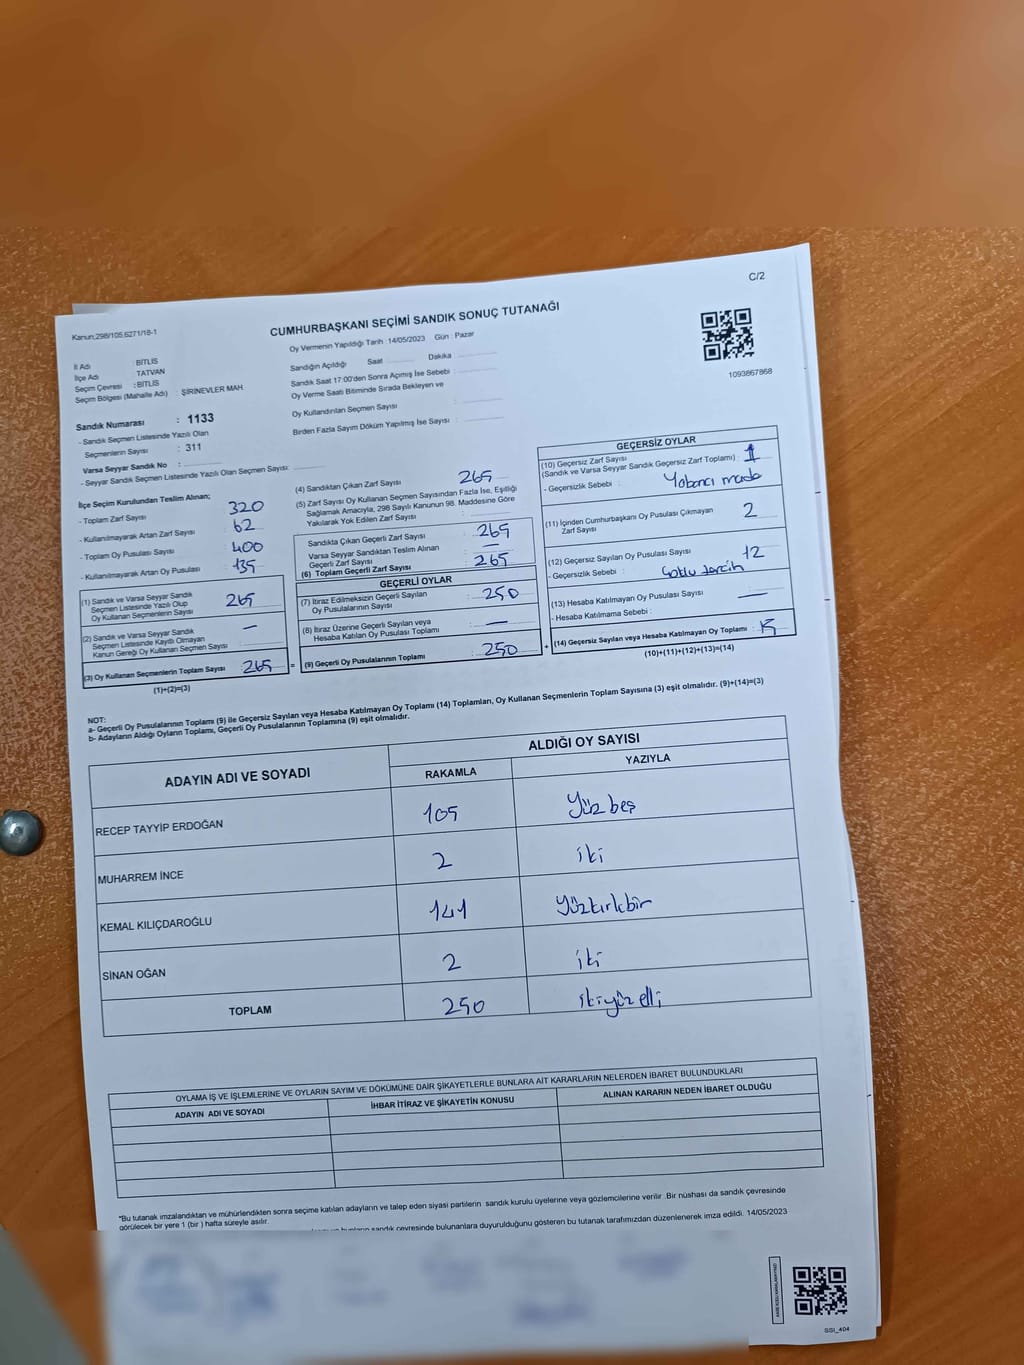 C/2
Kanun;298/105,6271/18-1
CUMHURBAŞKANI SEÇİMİ SANDIK SONUÇ TUTANAĞI
Oy Vermenin Yapıldığı Tarih :14/05/2023 Gün : Pazar
İl Adı : BİTLİS
İlçe Adı : TATVAN
Seçim Çevresi : BİTLİS
Seçim Bölgesi (Mahalle Adı) : ŞİRİNEVLER MAH.
Sandığın Açıldığı Saat Dakika
Sandık Saat 17:00'den Sonra Açımış İse Sebebi :
Oy Verme Saati Bitiminde Sırada Bekleyen ve
Oy Kullandırılan Seçmen Sayısı :
Birden Fazla Sayım Döküm Yapılmış İse Sayısı :
1093867868
Sandık Numarası : 1133
- Sandık Seçmen Listesinde Yazılı Olan
Seçmenlerin Sayısı : 311
Varsa Seyyar Sandık No :
- Seyyar Sandık Seçmen Listesinde Yazılı Olan Seçmen Sayısı:
İlçe Seçim Kurulundan Teslim Alınan;
- Toplam Zarf Sayısı : 320
- Kullanılmayarak Artan Zarf Sayısı : 62
- Toplam Oy Pusulası Sayısı : 400
- Kullanılmayarak Artan Oy Pusulası : 135
(1) Sandık ve Varsa Seyyar Sandık
Seçmen Listesinde Yazılı Olup
Oy Kullanan Seçmenlerin Sayısı : 265
(2) Sandık ve Varsa Seyyar Sandık
Seçmen Listesinde Kayıtlı Olmayan
Kanun Gereği Oy Kullanan Seçmen Sayısı : —
(3) Oy Kullanan Seçmenlerin Toplam Sayısı : 265 =
(1)+(2)=(3)
(4) Sandıktan Çıkan Zarf Sayısı : 265
(5) Zarf Sayısı Oy Kullanan Seçmen Sayısından Fazla İse, Eşitliği
Sağlamak Amacıyla, 298 Sayılı Kanunun 98. Maddesine Göre
Yakılarak Yok Edilen Zarf Sayısı :
Sandıkta Çıkan Geçerli Zarf Sayısı : 265
Varsa Seyyar Sandıktan Teslim Alınan
Geçerli Zarf Sayısı : —
(6) Toplam Geçerli Zarf Sayısı : 265
GEÇERLİ OYLAR
(7) İtiraz Edilmeksizin Geçerli Sayılan
Oy Pusulalarının Sayısı : 250
(8) İtiraz Üzerine Geçerli Sayılan veya
Hesaba Katılan Oy Pusulası Toplamı : —
(9) Geçerli Oy Pusulalarının Toplamı : 250 +
GEÇERSİZ OYLAR
(10) Geçersiz Zarf Sayısı
(Sandık ve Varsa Seyyar Sandık Geçersiz Zarf Toplamı) : 1
- Geçersizlik Sebebi : Yabancı madde
(11) İçinden Cumhurbaşkanı Oy Pusulası Çıkmayan
Zarf Sayısı : 2
(12) Geçersiz Sayılan Oy Pusulası Sayısı : 12
- Geçersizlik Sebebi : Çoklu tercih
(13) Hesaba Katılmayan Oy Pusulası Sayısı : —
- Hesaba Katılmama Sebebi :
(14) Geçersiz Sayılan veya Hesaba Katılmayan Oy Toplamı : 15
(10)+(11)+(12)+(13)=(14)
NOT:
a- Geçerli Oy Pusulalarının Toplamı (9) ile Geçersiz Sayılan veya Hesaba Katılmayan Oy Toplamı (14) Toplamları, Oy Kullanan Seçmenlerin Toplam Sayısına (3) eşit olmalıdır. (9)+(14)=(3)
b- Adayların Aldığı Oyların Toplamı, Geçerli Oy Pusulalarının Toplamına (9) eşit olmalıdır.
ADAYIN ADI VE SOYADI
ALDIĞI OY SAYISI
RAKAMLA YAZIYLA
RECEP TAYYİP ERDOĞAN 105 Yüz beş
MUHARREM İNCE 2 iki
KEMAL KILIÇDAROĞLU 141 Yüzkırkbir
SİNAN OĞAN 2 iki
TOPLAM 250 ikiyüz elli
OYLAMA İŞ VE İŞLEMLERİNE VE OYLARIN SAYIM VE DÖKÜMÜNE DAİR ŞİKAYETLERLE BUNLARA AİT KARARLARIN NELERDEN İBARET BULUNDUKLARI
ADAYIN ADI VE SOYADI İHBAR İTİRAZ VE ŞİKAYETİN KONUSU ALINAN KARARIN NEDEN İBARET OLDUĞU
"Bu tutanak imzalandıktan ve mühürlendikten sonra seçime katılan adayların ve talep eden siyasi partilerin sandık kurulu üyelerine veya gözlemcilerine verilir .Bir nüshası da sandık çevresinde
görülecek bir yere 1 (bir ) hafta süreyle asılır.
sandık çevresinde bulunanlara duyurulduğunu gösteren bu tutanak tarafımızdan düzenlenerek imza edildi. 14/05/2023
SSI_404